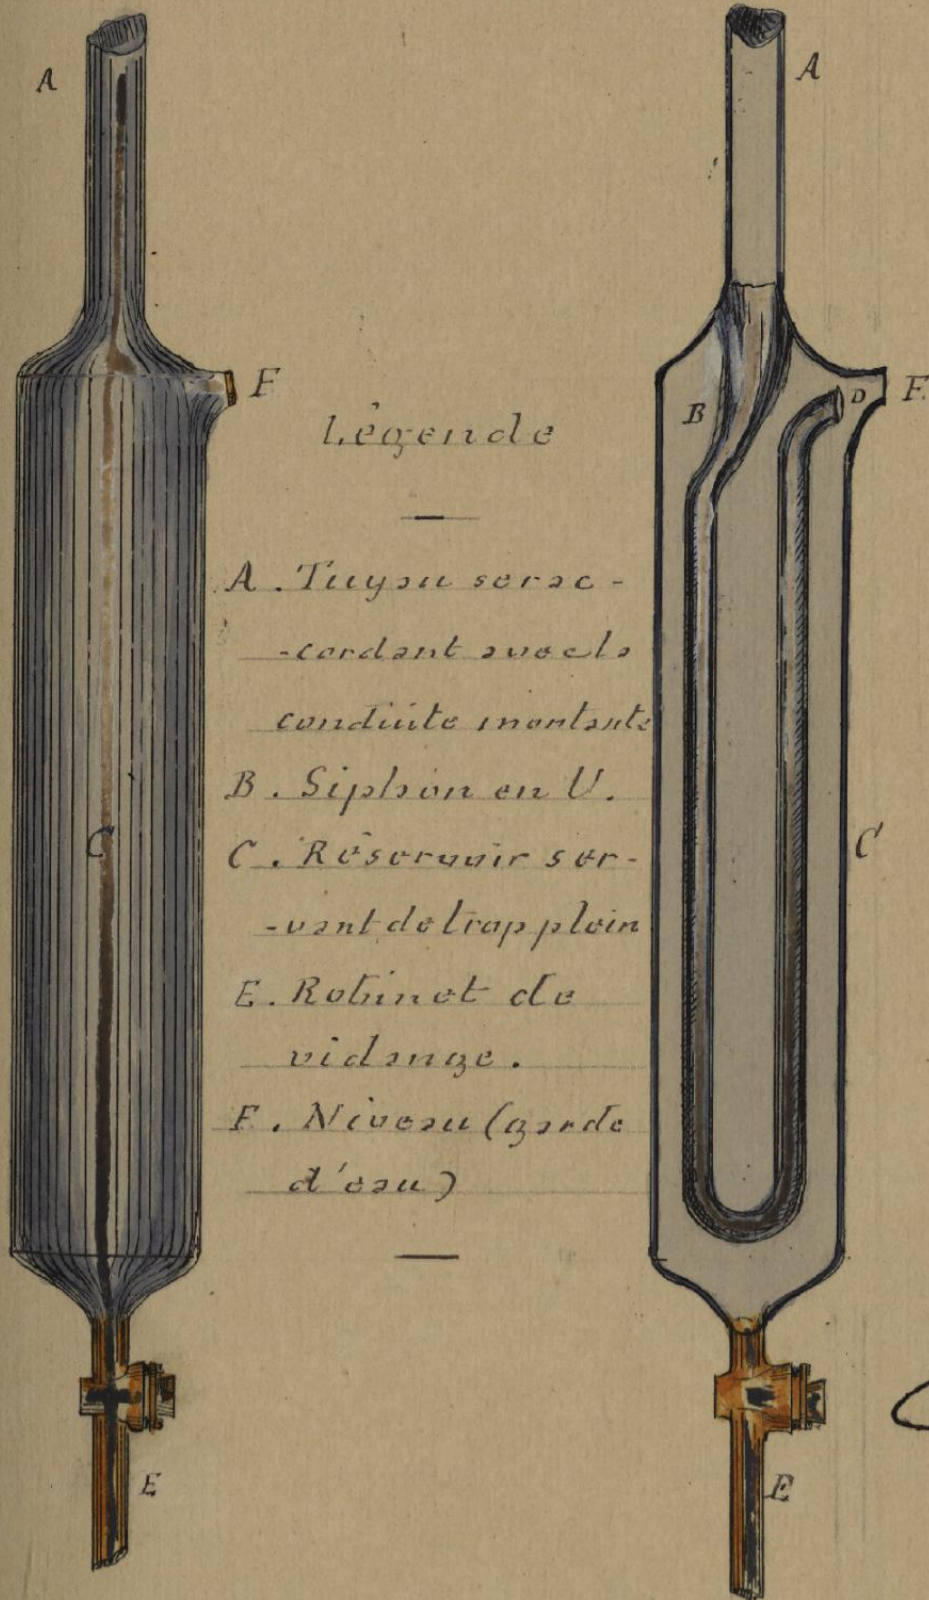 A
A
F
B
D
F
Légende
A. Tuyau se rac-
-cordant avec la
conduite montante
B. Siphon en U.
C. Réservoir ser-
-vant de trop plein
E. Robinet de
vidange.
F. Niveau (garde
d'eau)
C
C
E
E